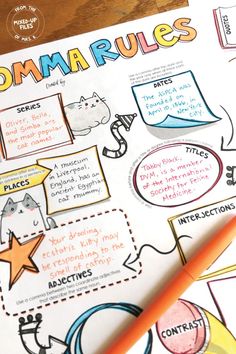 FROM THE
MIXED-UP
FILES
OF MRS. K.
OMMA RULES
SERIES
Oliver, Bella,
and Simba are
the most popular
cat names.
DATES
The ASPCA was
founded on
April 10, 1866, in
New York
City.
PLACES
A museum
in Liverpool,
England, has an
ancient Egyptian
cat mummy.
TITLES
Tabby Black,
DVM, is a member
of the International
Society for Feline
Medicine.
Your drooling,
ecstatic kitty may
be responding to the
smell of catnip.
INTERJECTIONS
ADJECTIVES
Use a comma between two coordinate adjectives
that describe the same noun.
CONTRAST